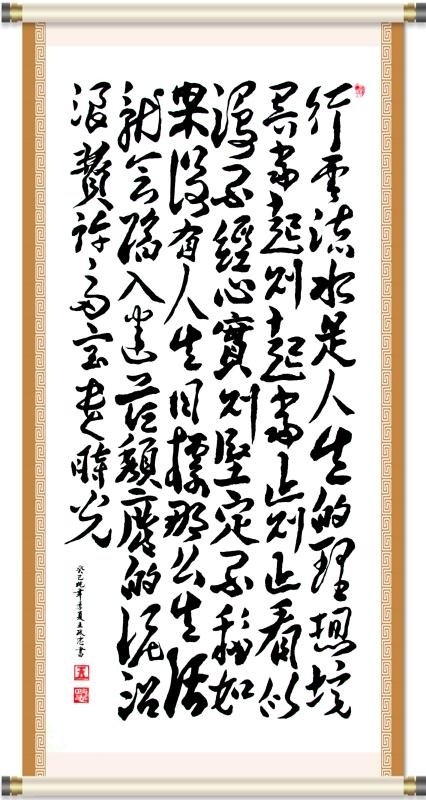 行雲流水是人生的理想境
界当起则起当止则止看似
漫不經心實则堅定不移如
果没有人生目標那么生活
就会陷入迷茫頹廢的泥沼
浪費許多宝贵時光
癸巳蛇年季夏王政書